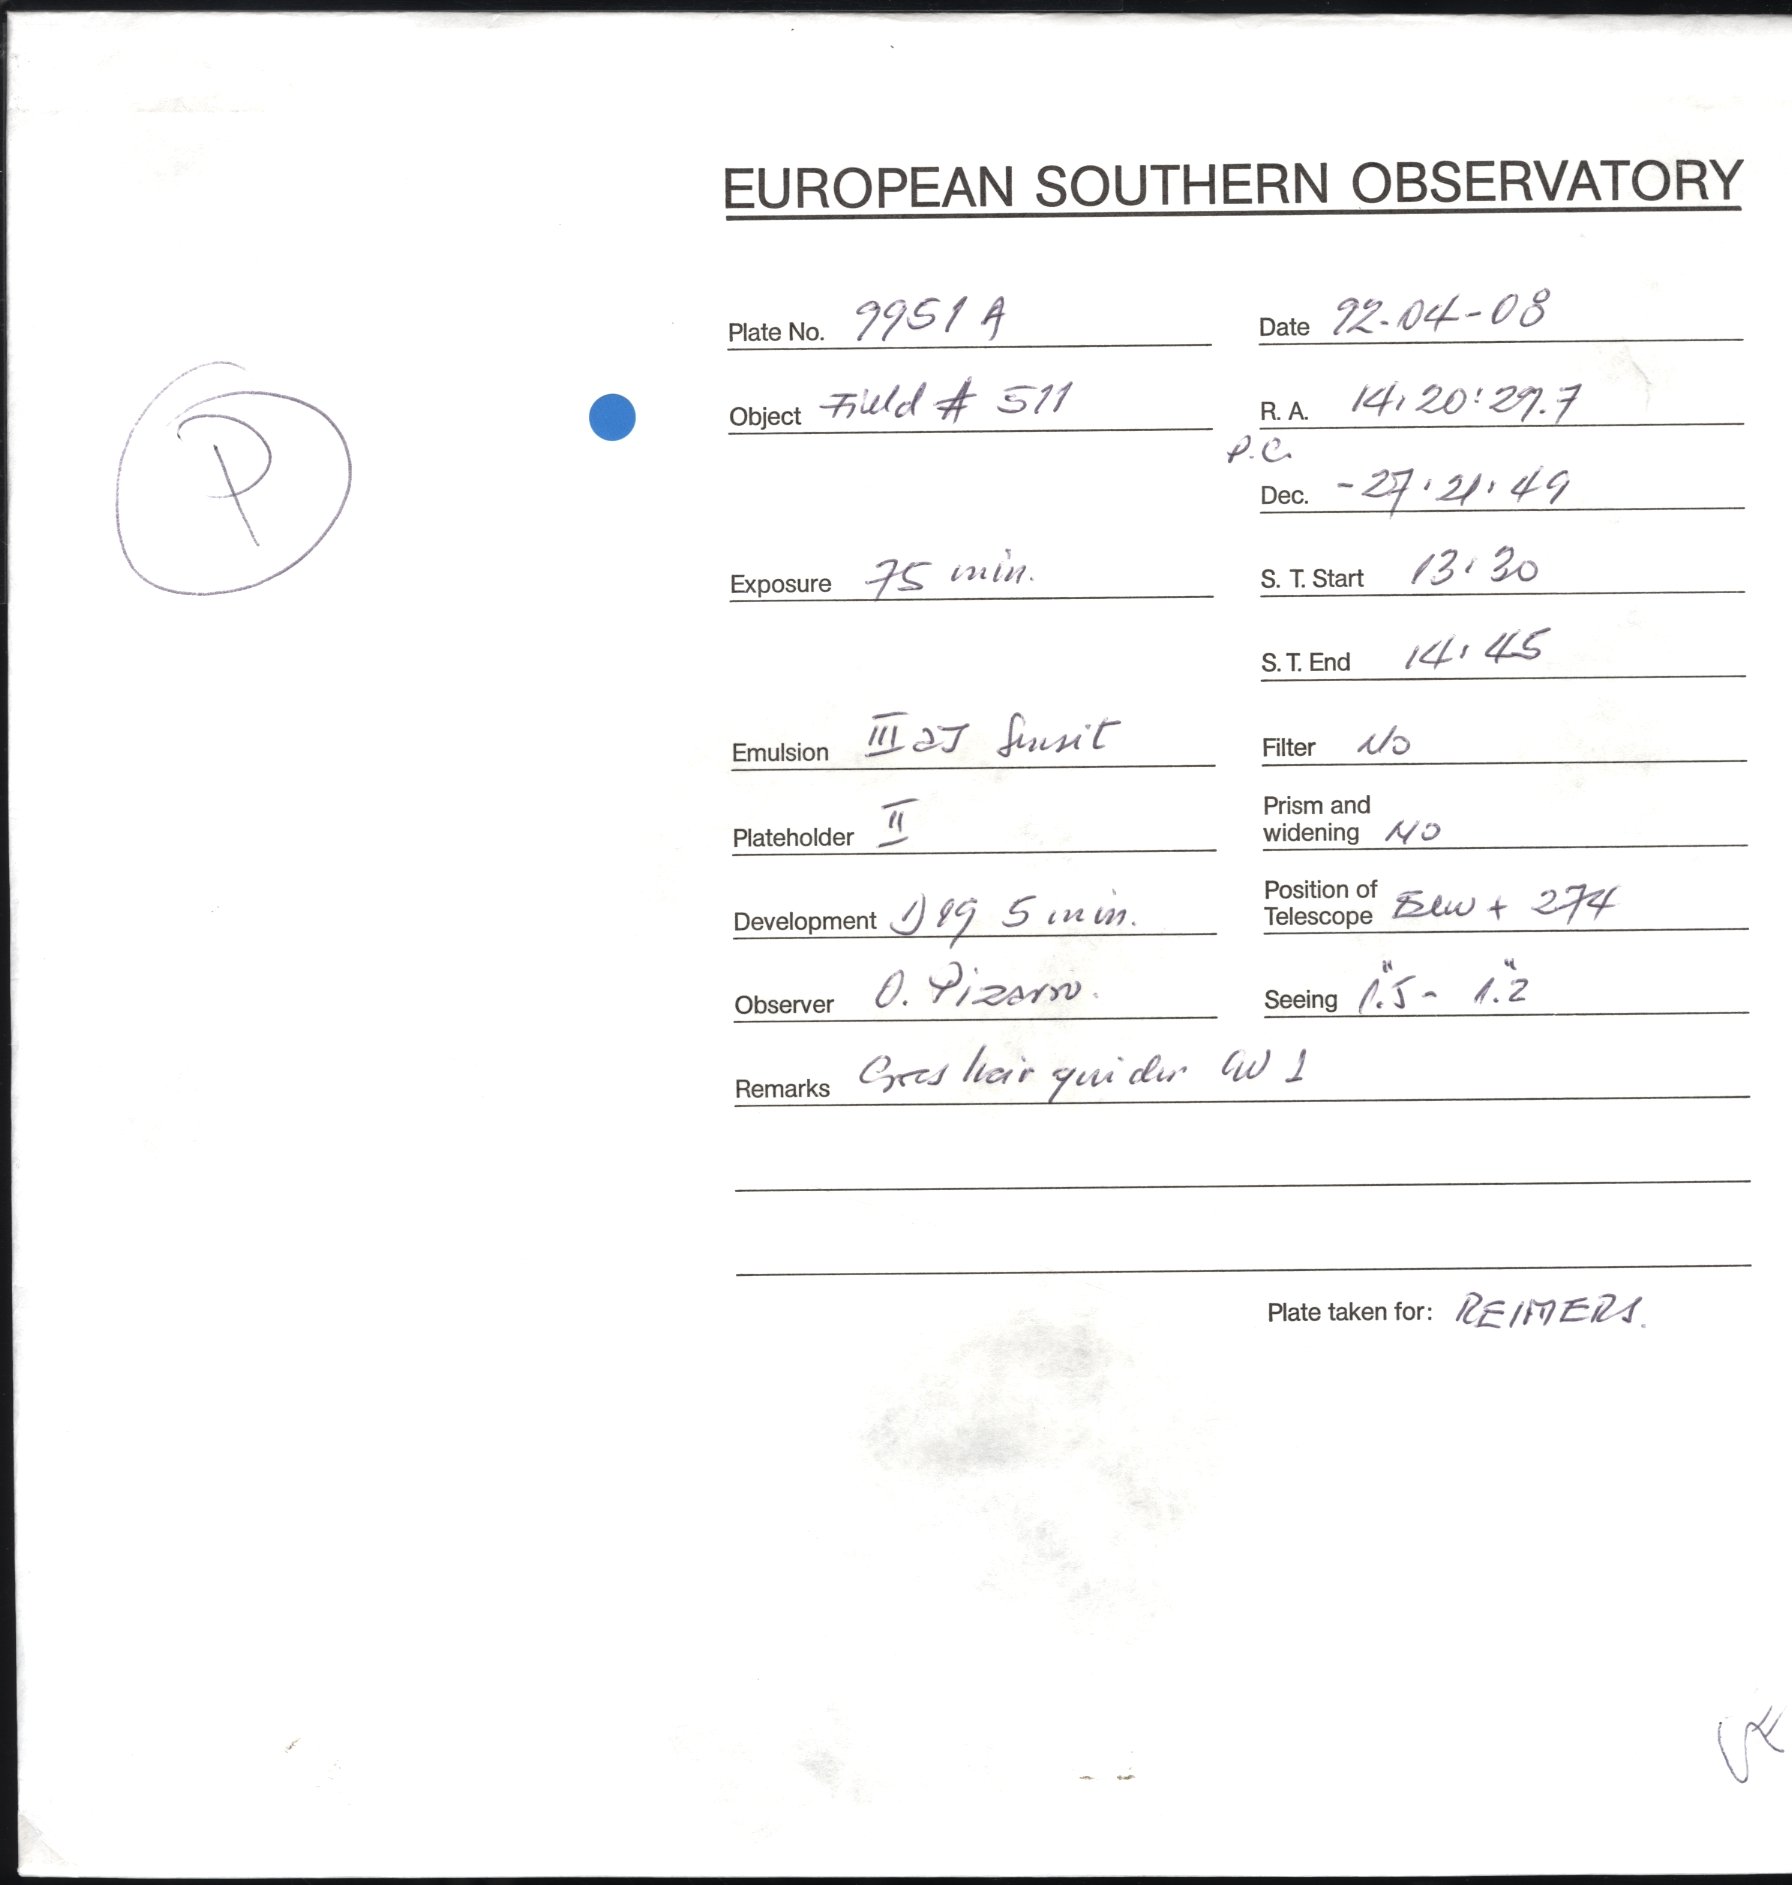 EUROPEAN SOUTHERN OBSERVATORY
Plate No. 9951 A Date 92-04-08
P
Object Field # 511 R. A. 14:20:29.7
P.C.
Dec. -27:21:49
Exposure 75 min. S. T. Start 13:30
S. T. End 14:45
Emulsion III aJ Sensit Filter No
Plateholder II Prism and
widening NO
Development D19 5 min. Position of
Telescope + 274
Observer O. Pizarro. Seeing 1."5 - 1."2
Remarks hair guider 1
Plate taken for: REIMERS.